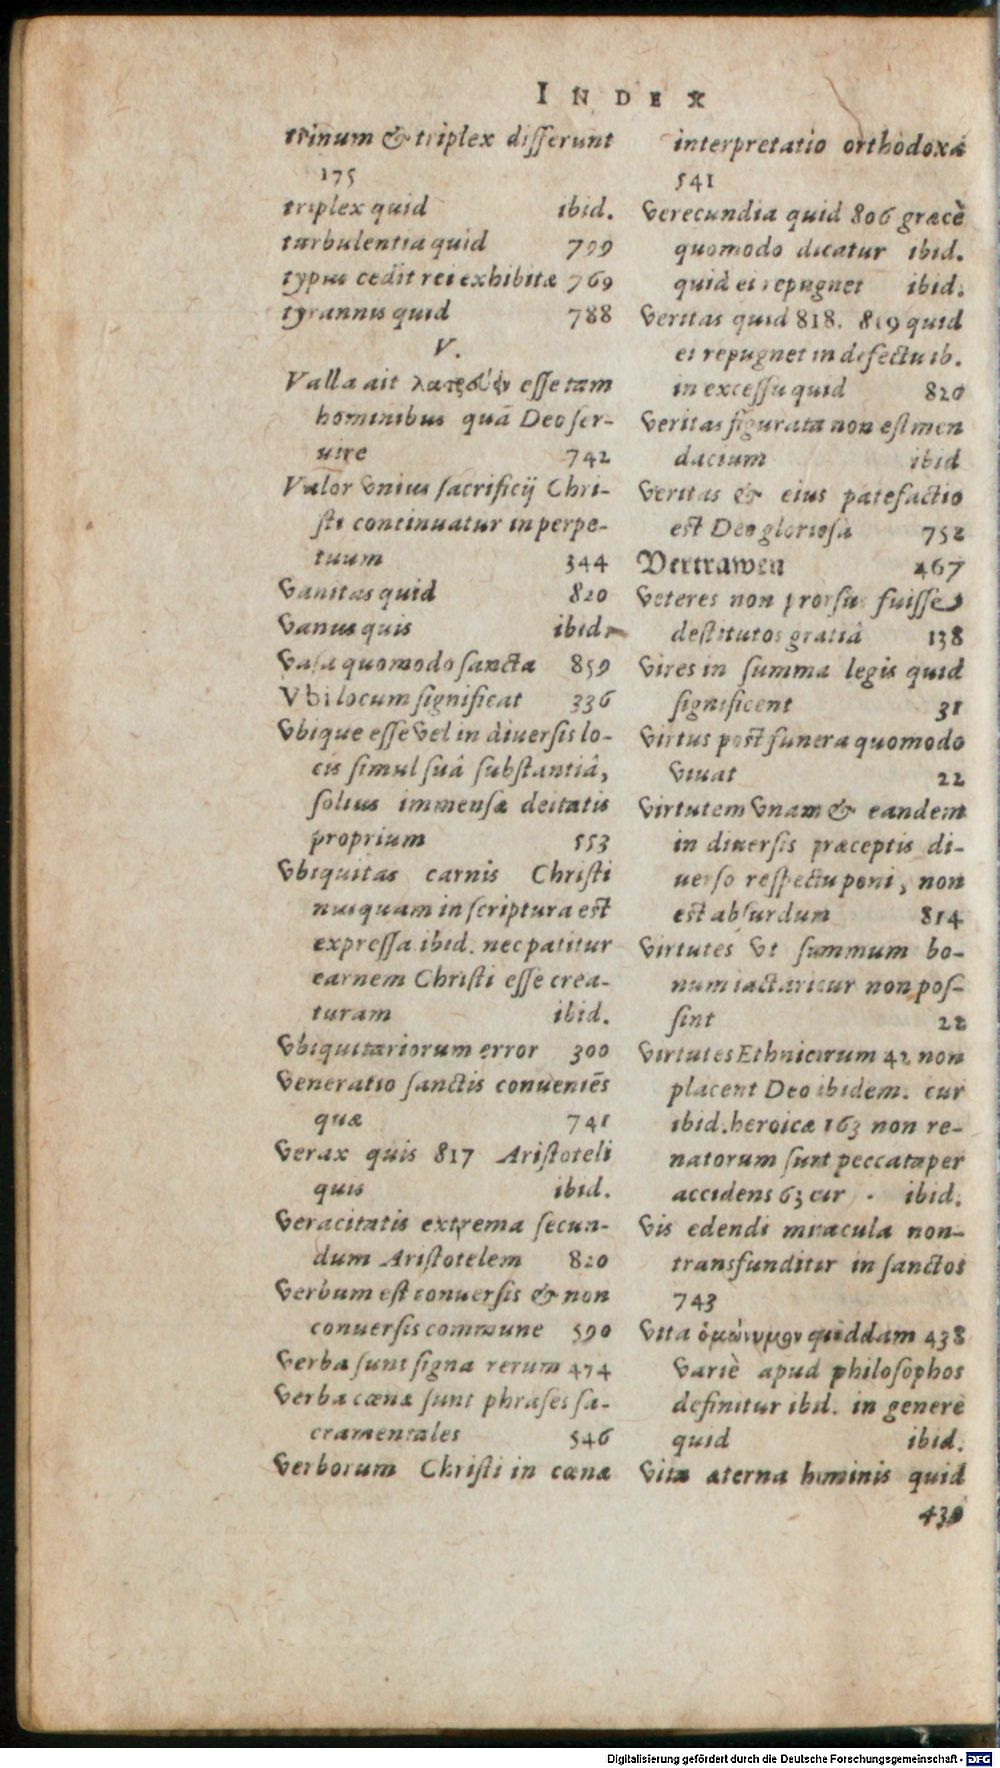 INDEX
trinum & triplex differunt
175
triplex quid ibid.
turbulentia quid 799
typus cedit rei exhibitæ 769
tyrannis quid 788
V.
Valla ait esse tam
hominibus quã Deo ser-
uire 742
Valor vnius sacrificij Chri-
sti continuatur in perpe-
tuum 344
Vanitas quid 820
Vanus quis ibid.
Vasa quomodo sancta 859
Vbi locum significat 336
Vbique esse vel in diuersis lo-
cis simul suâ substantiâ,
solius immensæ deitatis
proprium 553
Vbiquitas carnis Christi
nusquam in scriptura est
expressa ibid. nec patitur
carnem Christi esse crea-
turam ibid.
Vbiquitariorum error 300
Veneratio sanctis conueniẽs
quæ 741
Verax quis 817 Aristoteli
quis ibid.
Veracitatis extrema secun-
dum Aristotelem 820
Verbum est conuersis & non
conuersis commune 590
Verba sunt signa rerum 474
Verba cœnæ sunt phrases sa-
cramentales 546
Verborum Christi in cœna
interpretatio orthodoxa
541
Verecundia quid 806 græcè
quomodo dicatur ibid.
quid ei repugnet ibid.
Veritas quid 818. 819 quid
ei repugnet in defectu ib.
in excessu quid 820
Veritas figurata non est men
dacium ibid
Veritas & eius patefactio
est Deo gloriosa 752
Vertrawen 467
Veteres non prorsus fuisse
destitutos gratiâ 138
Vires in summa legis quid
significent 31
Virtus post funera quomodo
viuat 22
Virtutem vnam & eandem
in diuersis præceptis di-
uerso respectu poni, non
est absurdum 814
Virtutes vt summum bo-
num iactari cur non pos-
sint 22
Virtutes Ethnicorum 42 non
placent Deo ibidem. cur
ibid. heroicæ 163 non re-
natorum sunt peccata per
accidens 63 cur ibid.
Vis edendi miracula non
transfunditur in sanctos
743
Vita ὁμώνυμον quiddam 438
variè apud philosophos
definitur ibid. in genere
quid ibid.
Vita æterna hominis quid
439
Digitalisierung gefördert durch die Deutsche Forschungsgemeinschaft - DFG